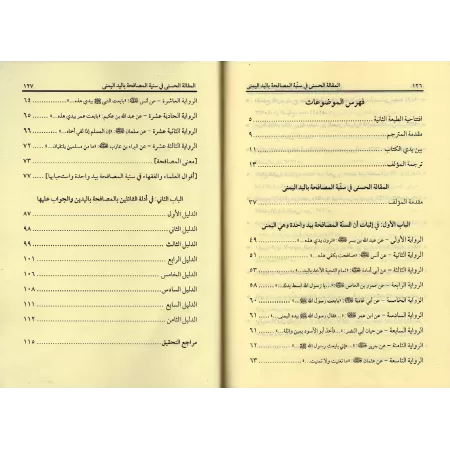 ١٢٦ المقالة الحسنى في سنية المصافحة باليد اليمنى
فهرس الموضوعات
افتتاحية الطبعة الثانية ٥
مقدمة المترجم ٩
بين يدي الكتاب ١١
ترجمة المؤلف ١٣
المقالة الحسنى في سنية المصافحة باليد اليمنى
مقدمة المؤلف ٣٧
الباب الأول: في إثبات أن السنة المصافحة بيد واحدة وهي اليمنى
الرواية الأولى - عن عبد الله بن بسر ﷺ: «ترون يدي هذه» ٤٩
الرواية الثانية - عن أنس ﷺ: «صافحت بكفي هذه» ٥١
الرواية الثالثة - عن أبي أمامة ﷺ: «تمام التحية الأخذ باليد» ٥٣
الرواية الرابعة - عن عمرو بن العاص ﷺ: «يا رسول الله ابسط يدك» ٥٨
الرواية الخامسة - عن أبي غادية ﷺ: «بايعت رسول الله ﷺ» ٦٠
الرواية السادسة - عن ابن عمر ﷺ: «فقال رسول الله ﷺ بيده اليمنى» ٦١
الرواية السابعة - عن حيان أبي النضر: «فأخذ أبو الأسود يمين واثلة» ٦١
الرواية الثامنة - عن جرير ﷺ: «فإني بايعت رسول الله ﷺ» ٦٢
الرواية التاسعة - عن عثمان ﷺ: «ما تغنيت ولا تمنيت» ٦٣
المقالة الحسنى في سنية المصافحة باليد اليمنى ١٢٧
الرواية العاشرة - عن أنس ﷺ: «بايعت النبي ﷺ بيدي هذه» ٦٤
الرواية الحادية عشرة - عن عبد الله بن عكيم: «بايعت عمر بيدي هذه» ٦٥
الرواية الثانية عشرة - عن سلمان ﷺ: «إن المسلم إذا لقي أخاه» ٦٦
الرواية الثالثة عشرة - عن البراء بن عازب ﷺ: «ما من مسلمين يلتقيان» ٧٢
[معنى المصافحة] ٧٣
[أقوال العلماء والفقهاء في سنية المصافحة بيد واحدة واستحبابها] ٧٧
الباب الثاني: في أدلة القائلين بالمصافحة باليدين والجواب عليها
الدليل الأول ٨٧
الدليل الثاني ٩٨
الدليل الثالث ٩٩
الدليل الرابع ١٠١
الدليل الخامس ١٠٦
الدليل السادس ١٠٨
الدليل السابع ١١١
الدليل الثامن ١١٢
مراجع التحقيق ١١٥